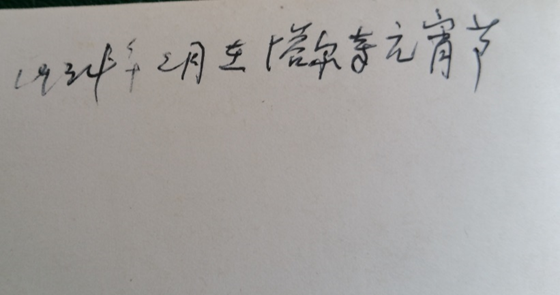 1934年2月在塔尔寺元宵节